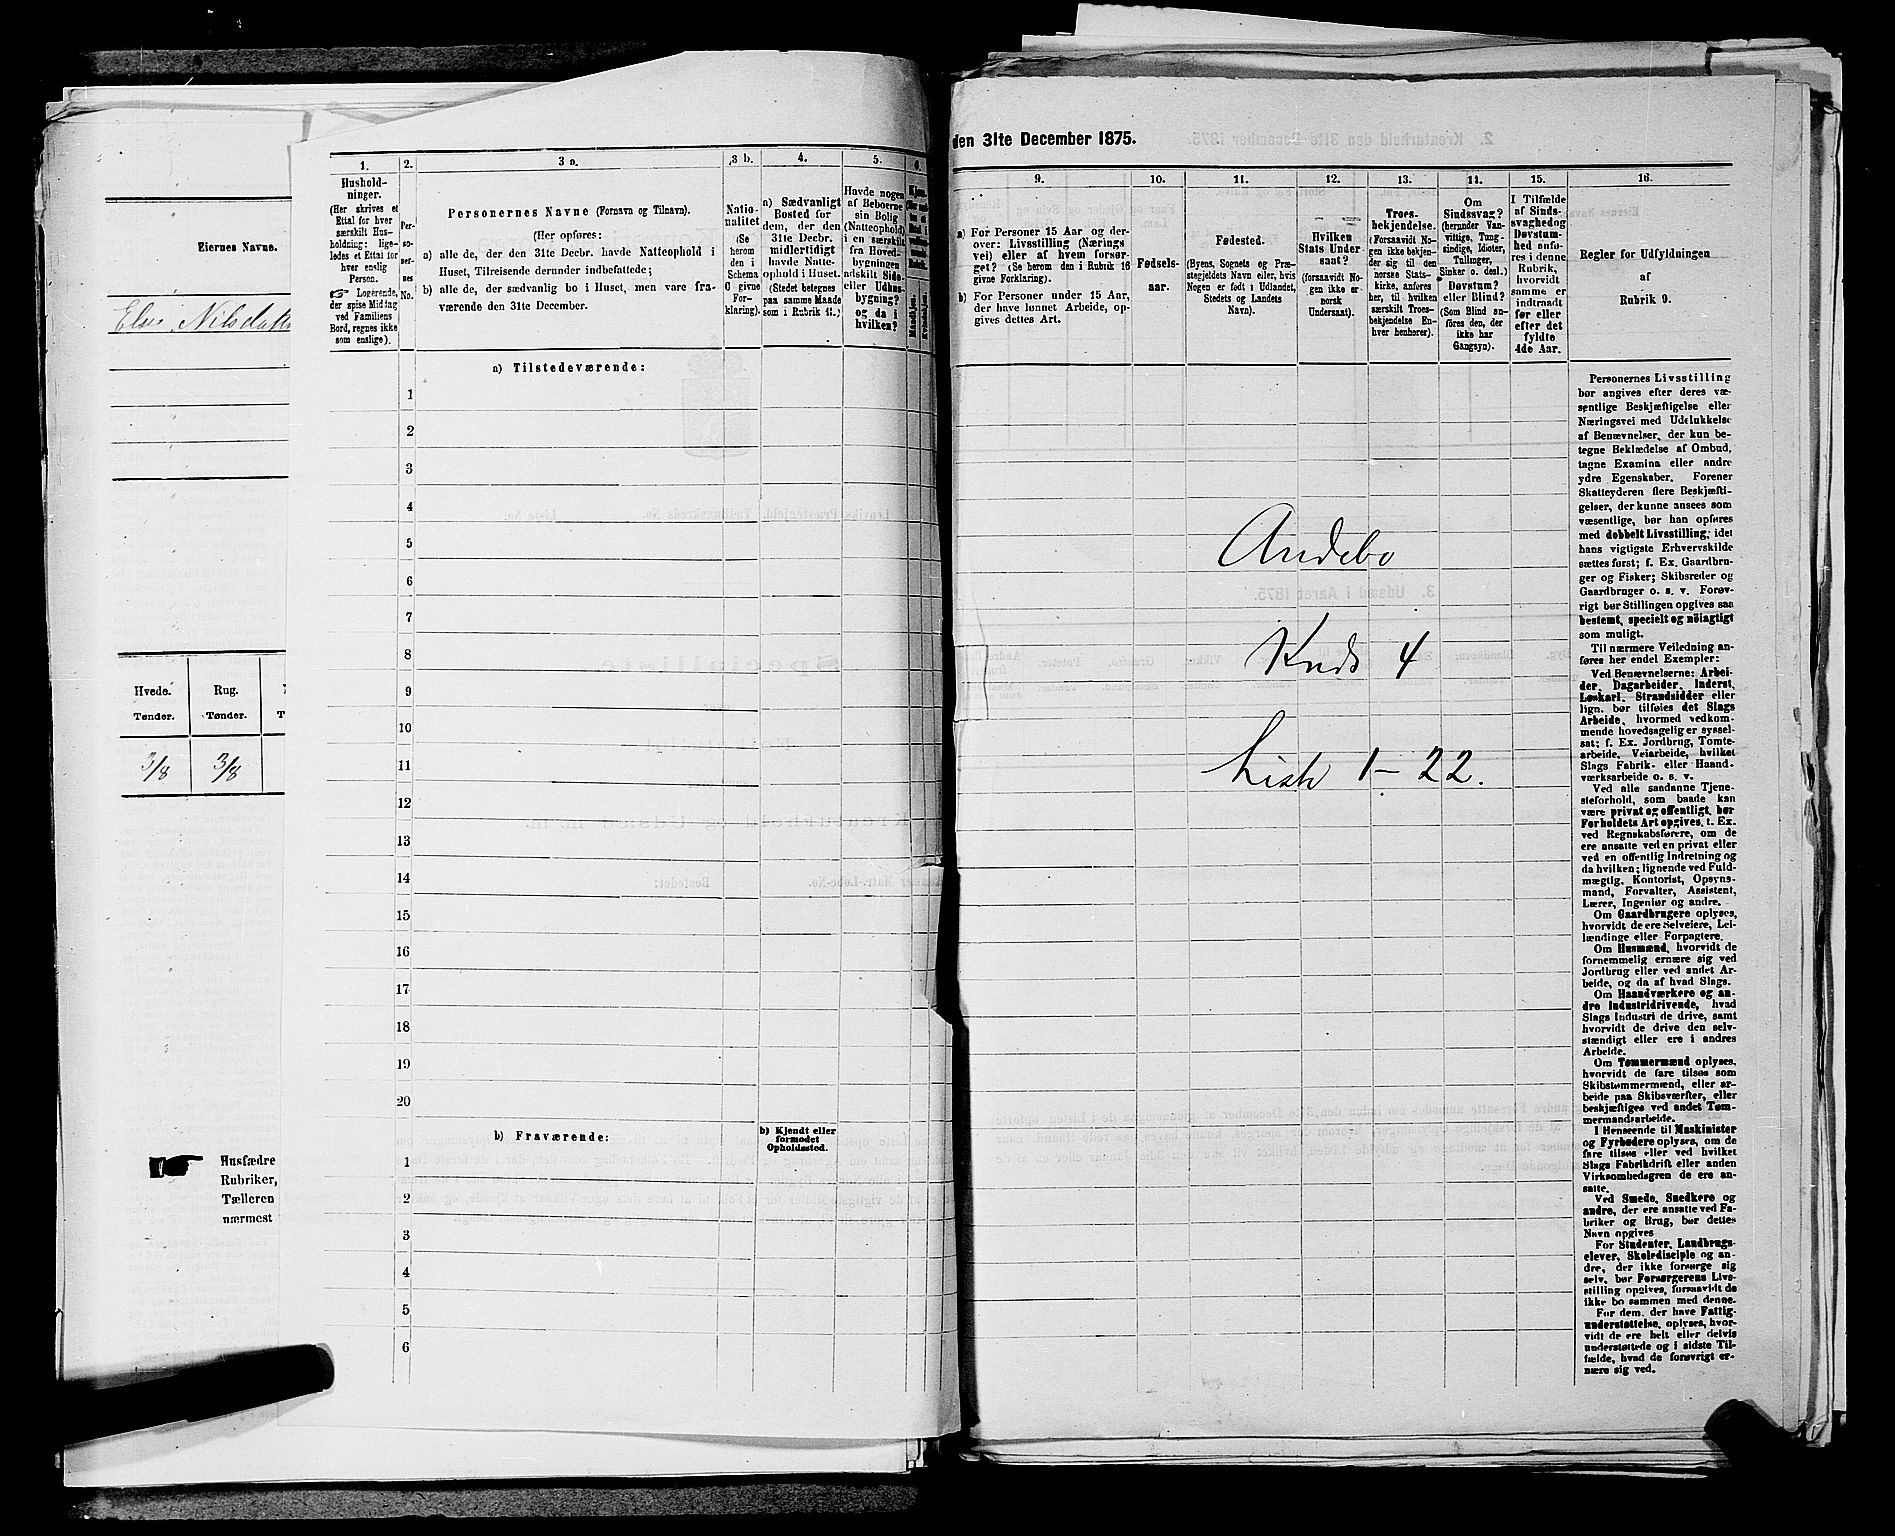 Eiernes Navne.
Else Nilsdatter
Hvede. Rug.
Tønder. Tønder. T
3/8 3/8
Husfædre
Rubriker,
Tælleren
nærmest
1. 2. 3 a. 3 b. 4. 5. 6.
Hushold-
ninger.
(Her skrives et
Ettal for hver
særskilt Hus-
holdning; lige-
ledes et Ettal for
hver enslig
Person.
Logerende,
der spise Middag
ved Familiens
Bord, regnes ikke
som enslige).
Per-
so-
ner-
nes
No.
Personernes Navne (Fornavn og Tilnavn).
(Her opføres:
a) alle de, der den 31te Decbr. havde Natteophold i
Huset, Tilreisende derunder indbefattede;
b) alle de, der sædvanlig bo i Huset, men vare fra-
værende den 31te December.
Natio-
nalitet
(Se
herom
den i
Schema
C givne
For-
klaring).
a) Sædvanligt
Bosted for
dem, der den
31te Decbr.
midlertidigt
havde Natte-
ophold i Huset.
(Stedet betegnes
paa samme Maade
som i Rubrik 11.)
Havde nogen
af Beboerne
sin Bolig
(Natteophold)
i en særskilt
fra Hoved-
bygningen
adskilt Side-
eller Udhus-
bygning?
og da i
hvilken?
Mandkjøn.
Kvindekjøn.
a) Tilstedeværende:
1
2
3
4
5
6
7
8
9
10
11
12
13
14
15
16
17
18
19
20
b) Fraværende:
b) Kjendt eller
formodet
Opholdssted.
1
2
3
4
5
6
den 31te December 1875.
9. 10. 11. 12. 13. 14. 15. 16.
a) For Personer 15 Aar og der-
over: Livsstilling (Nærings-
vei) eller af hvem forsør-
get? (Se herom den i Rubrik 16
givne Forklaring).
b) For Personer under 15 Aar,
der have lønnet Arbeide, op-
gives dettes Art.
Fødsels-
aar.
Fødested.
(Byens, Sognets og Præ-
stegjeldets Navn eller, hvis
Nogen er født i Udlandet,
Stedets og Landets
Navn).
Hvilken
Stats Under-
saat?
(forsaavidt No-
gen ikke er
norsk
Undersaat).
Troes-
bekjendelse.
(Forsaavidt No-
gen ikke bekjen-
der sig til den
norske Stats-
kirke, anføres
her, til hvilken
særskilt Troes-
bekjendelse En-
hver henhører).
Om
Sindssvag?
(herunder Van-
vittige, Tung-
sindige, Idioter,
Tullinger,
Sinker o. desl.)
Døvstum?
eller Blind?
(Som Blind an-
føres den, der
ikke har
Gangsyn).
I Tilfælde
af Sinds-
svaghed og
Døvstum-
hed anfø-
res i denne
Rubrik,
hvorvidt
samme er
indtraadt
før eller
efter det
fyldte
4de Aar.
Regler for Udfyldningen
af
Rubrik 9.
Andebo
Kreds 4
Liste 1-22.
Personernes Livsstilling
bør angives efter deres væ-
sentlige Beskjæftigelse eller
Næringsvei med Udelukkelse
af Benævnelser, der kun be-
tegne Beklædelse af Ombud,
tagne Examina eller andre
ydre Egenskaber. Forener
Skatteyderen flere Beskjæfti-
gelser, der kunne ansees som
væsentlige, bør han opføres
med dobbelt Livsstilling, idet
hans vigtigste Erhvervskilde
sættes først; f. Ex. Gaardbru-
ger og Fisker; Skibsreder og
Gaardbruger o. s. v. Forøv-
rigt bør Stillingen opgives saa
bestemt, specielt og nöiagtigt
som muligt.
Til nærmere Veiledning an-
føres her endel Exempler:
Ved Benævnelserne: Arbei-
der, Dagarbeider, Inderst,
Løskarl, Strandsidder eller
lign. bør tilføies det Slags
Arbeide, hvormed vedkom-
mende hovedsagelig er syssel-
sat; f. Ex. Jordbrug, Tomte-
arbeide, Veiarbeide, hvilket
Slags Fabrik- eller Haand-
værksarbeide o. s. v.
Ved alle saadanne Tjene-
steforhold, som baade kan
være privat og offentligt, bør
Forholdets Art opgives, t. Ex.
ved Regnskabsførere, om de
ere ansatte ved en privat eller
ved en offentlig Indretning og
da hvilken; lignende ved Fuld-
mægtig, Kontorist, Opsyns-
mand, Forvalter, Assistent,
Lærer, Ingeniør og andre.
Om Gaardbrugere oplyses,
hvorvidt de ere Selveiere, Lei-
lændinge eller Forpagtere.
Om Husmænd, hvorvidt de
fornemmelig ernære sig ved
Jordbrug eller ved andet Ar-
beide, og da af hvad Slags.
Om Haandværkere og an-
dre Industridrivende, hvad
Slags Industri de drive, samt
hvorvidt de drive den selv-
stændigt eller ere i andres
Arbeide.
Om Tømmermænd oplyses,
hvorvidt de fare tilsøs som
Skibstømmermænd, eller ar-
beide paa Skibsværfter, eller
beskjæftiges ved andet Tøm-
mermandsarbeide.
I Henseende til Maskinister
og Fyrbødere oplyses, om de
fare tilsøs eller ved hvilket
Slags Fabrikdrift eller anden
Virksomhedsgren de ere an-
satte.
Ved Smede, Snedkere og
andre, der ere ansatte ved Fa-
briker og Brug, bør dettes
Navn opgives
For Studenter, Landbrugs-
elever, Skoledisciple og an-
dre, der ikke forsørge sig
selv, bør Forsørgerens Livs-
stilling opgives, forsaavidt de
ikke bo sammen med denne.
For dem, der have Fattig-
understøttelse, oplyses, hvor-
vidt de ere helt eller delvis
understøttede og i sidste Til-
fælde, hvad de forøvrigt er-
nære sig ved.